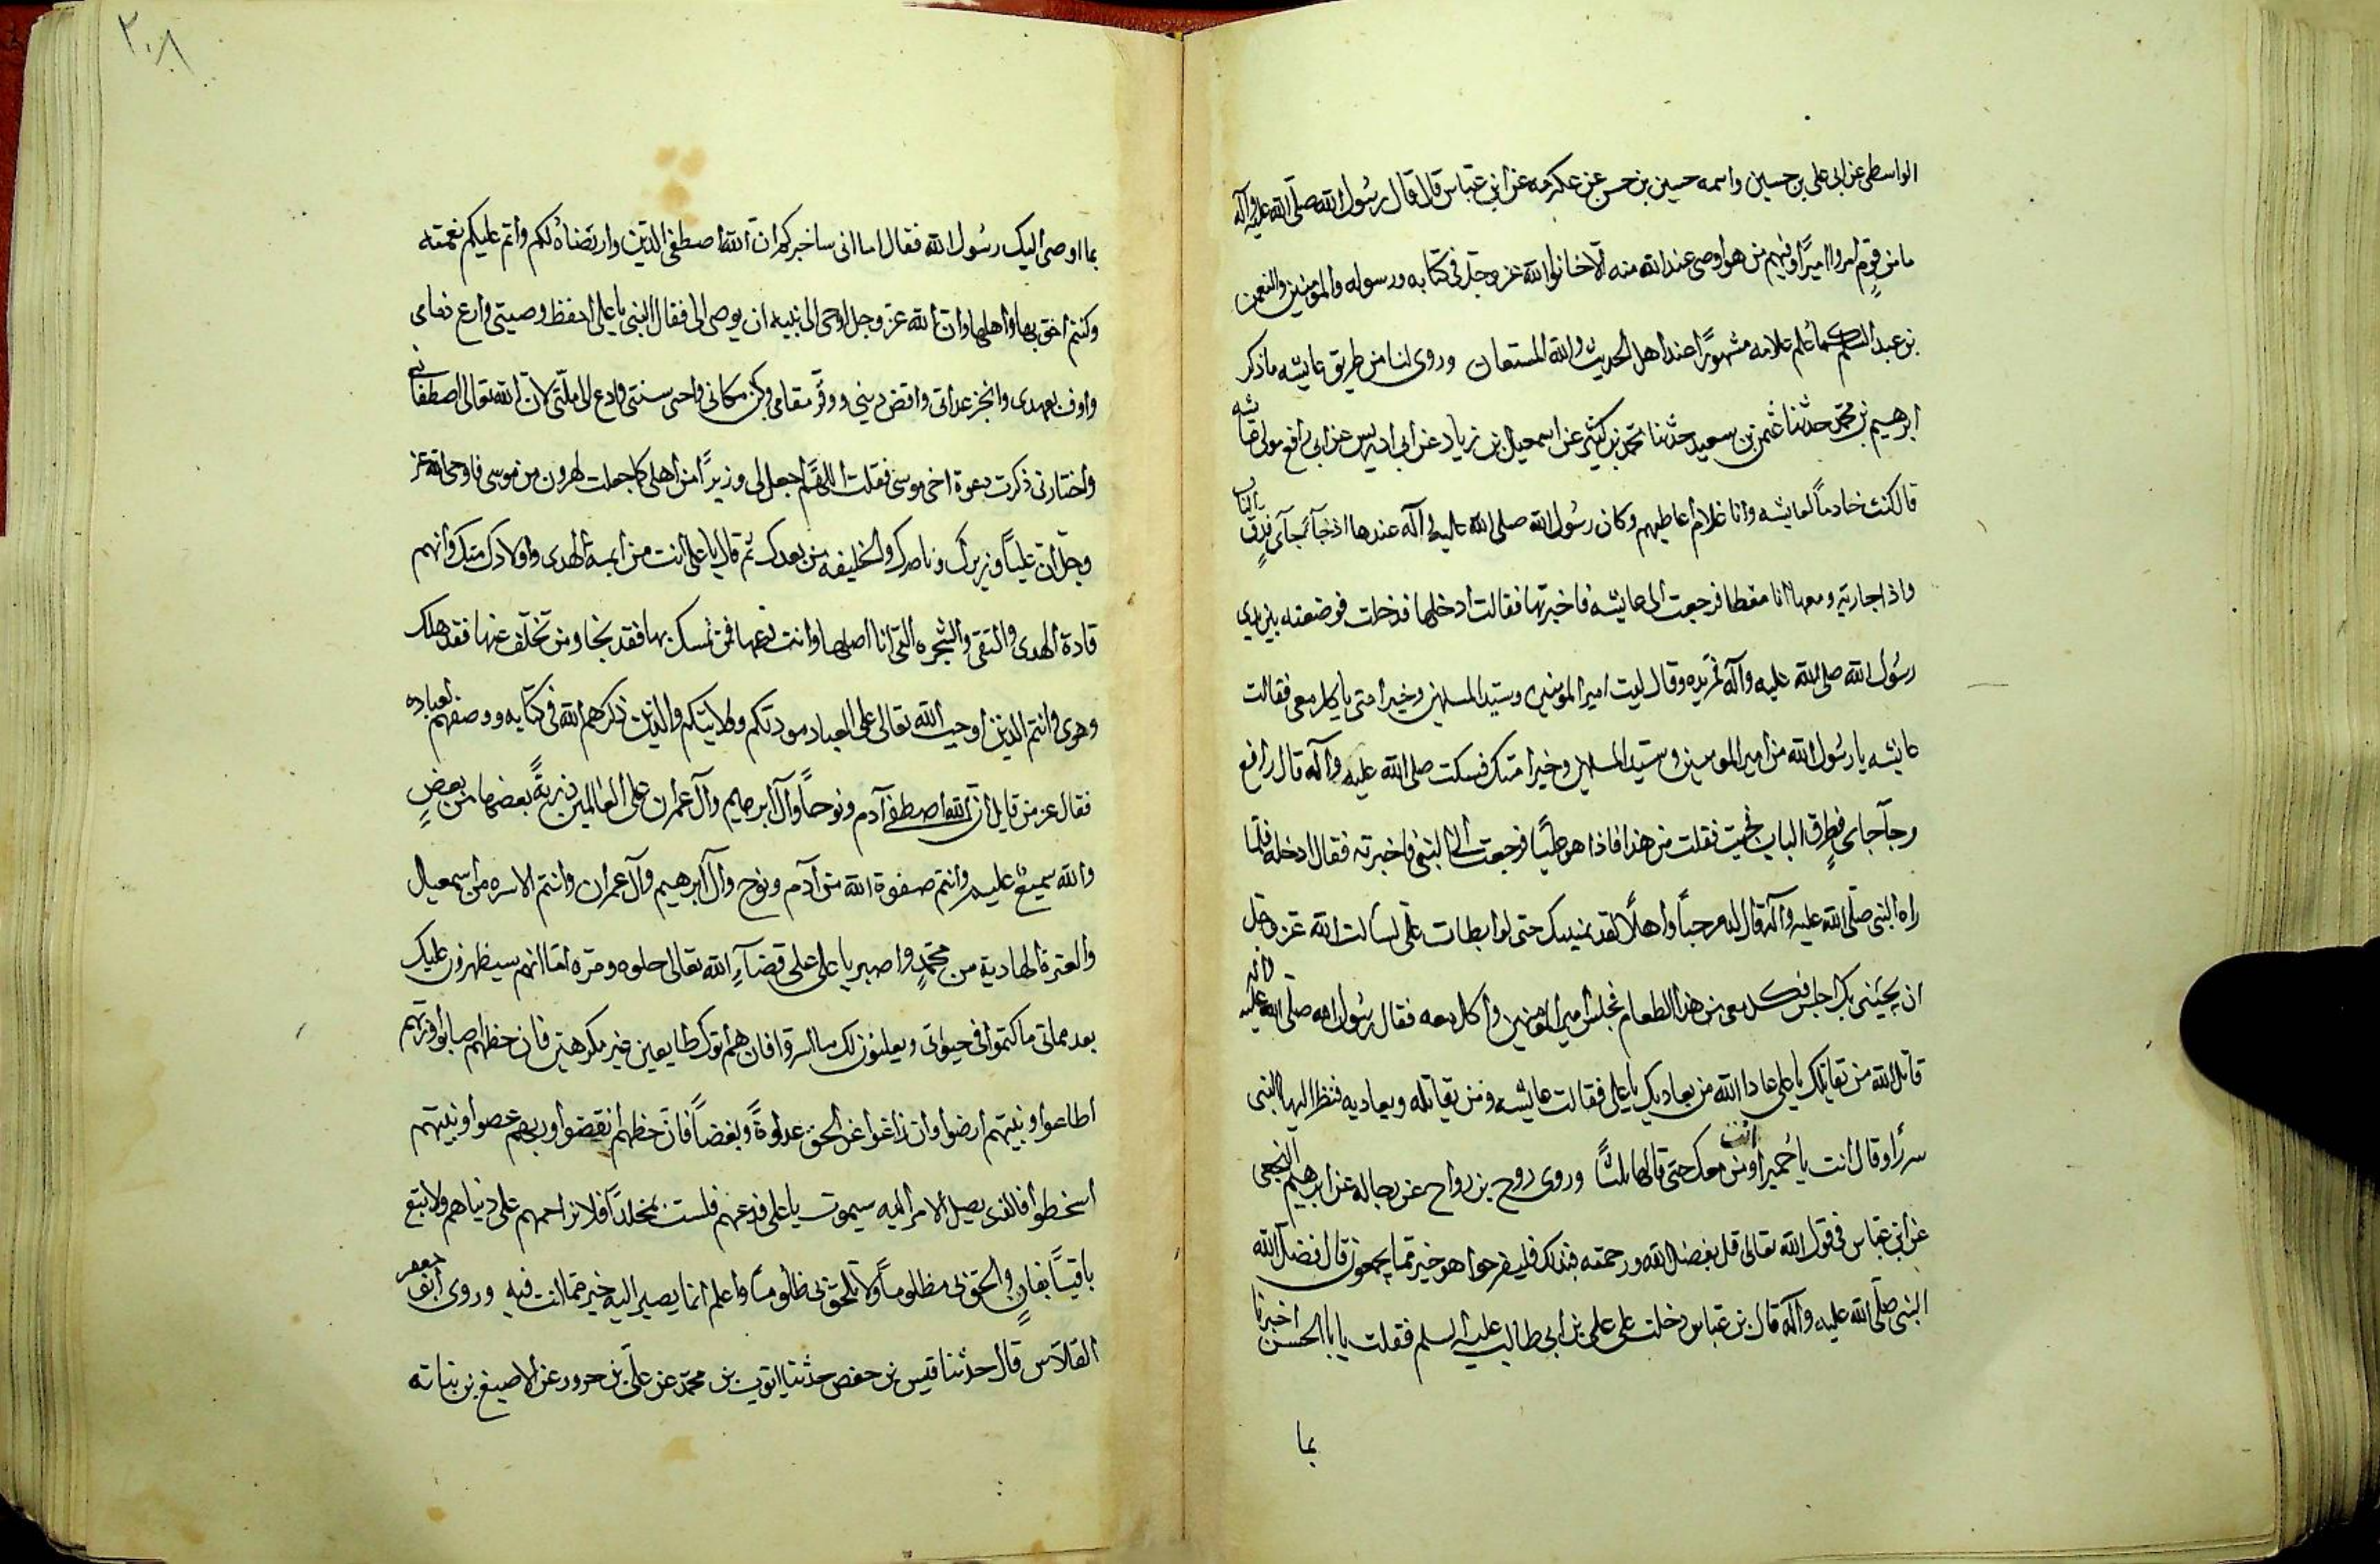 الواسطى عن ابى على بن حسين واسمه حسين بن حسن عن عكرمه عن ابن عباس قال قال رسول الله صلى الله عليه وآله
ما من قوم امروا اميرًا وفيهم من هو اوصى عند الله منه الا خانوا الله عز وجل فى كتابه ورسوله والمؤمنين والنعمن
بن عبد السلم كما تعلم علامه مشهورًا عند اهل الحديث والله المستعان وروى لنا من طريق عايشه ما ذكر
ابرهيم بن محمد حدثنا عثمن بن سعيد حدثنا محمد بن كثير عن اسمعيل بن زياد عن ابى ادريس عن ابى رافع مولى عايشه
قال كنت خادمًا لعايشه وانا غلام اعاطيهم وكان رسول الله صلى الله عليه وآله عندها اذ جآء جآى فدق الباب
واذا جارية ومعها انا مغطا فرجعت الى عايشه فاخبرتها فقالت ادخلها فدخلت فوضعته بين يدى
رسول الله صلى الله عليه وآله فمد يده وقال ليت امير المؤمنين وسيد المسلمين وخير امتى ياكل معى فقالت
عايشه يا رسول الله من امير المومنين وسيد المسلمين وخير امتك فسكت صلى الله عليه وآله قال رافع
وجآ جاى فطرق الباب فجيت فقلت من هذا فاذا هو عليًا فرجعت الى النبى فاخبرته فقال ادخله فلما
راه النبى صلى الله عليه وآله قال له مرحبًا واهلًا لقد تمنيتك حتى لو ابطات على لسالت الله عز وجل
ان يجيئنى بك اجلس فكل معى من هذا الطعام فجلس امير المومنين واكل معه فقال رسول الله صلى الله عليه وآله
قاتل الله من تقاتلك يا على عادا الله من يعاديك يا على فقالت عايشه ومن يقاتله ويعاديه فنظر اليها النبى
سرًا وقال انت يا حميرا انت ومن معك حتى قالها ثلثًا وروى روح بن رواح عن رجاله عن ابرهيم النخعى
عن ابن عباس فى قول الله تعالى قل بفضل الله ورحمته فبذلك فليفرحوا هو خير مما يجمعون قال فضل الله
النبى صلى الله عليه وآله قال بن عباس دخلت على على بن ابى طالب عليه السلم فقلت يا با الحسن اخبرنا
بما
٢٠٨
بما اوصى اليك رسول الله فقال اما انى ساخبركم ان الله اصطفى الدين وارتضاه لكم واتم عليكم نعمته
وكنتم احق بها واهلها وان الله عز وجل اوحى الى نبيه ان يوصى الى فقال النبى يا على احفظ وصيتى وارع ذمامى
واوف بعهدى وانجز عداتى واقض دينى ووقر مقامى وكن مكانى واحى سنتى وادع الى ملتى لان الله تعالى اصطفانى
واختارنى ذكرت دعوة اخى موسى فقلت اللهم اجعل لى وزيرًا من اهلى كما جعلت هرون من موسى فاوحى الله عز
وجل ان عليًا وزيرك وناصرك والخليفه من بعدك ثم قال يا على انت من ايمة الهدى واولادك منك وانهم
قادة الهدى والتقى والشجره التى انا اصلها وانت فرعها فمن تمسك بها فقد نجا ومن تخلف عنها فقد هلك
وهوى وانتم الذين اوجب الله تعالى على العباد مودتكم وولايتكم والذين ذكرهم الله فى كتابه ووصفهم لعباده
فقال عز من قايل ان الله اصطفى آدم ونوحًا وآل ابرهيم وآل عمران على العالمين ذريةً بعضها من بعضٍ
والله سميع عليم وانتم صفوة الله من آدم ونوح وآل ابرهيم وآل عمران وانتم الاسره من اسمعيل
والعترة الهادية من محمدٍ واصبر يا على على قضآء الله تعالى حلوه ومره اما انهم سيظهرون عليك
بعد مماتى ما كتموا فى حيوتى ويعلنون لك ما اسروا فان هم اتوك طايعين غير مكرهين فان حظهم اصابوا وربهم
اطاعوا ونبيهم ارضوا وان زاغوا عن الحق عداوةً وبغضًا فان حظهم نقصوا وربهم عصوا ونبيهم
اسخطوا فالذى يصل الامر اليه سيموت يا على فدعهم فلست بمخلدٍ فلا تزاحمهم على دنياهم ولا تبتع
باقيًا بفانٍ والحق بى مظلومًا ولا تلحق بى ظلومًا واعلم انما يصير اليه خير مما انت فيه وروى ابو جعفر
القلاس قال حدثنا قيس بن حفص حدثنا ايوب بن محمد عن على بن حرور عن الاصبغ بن نباته